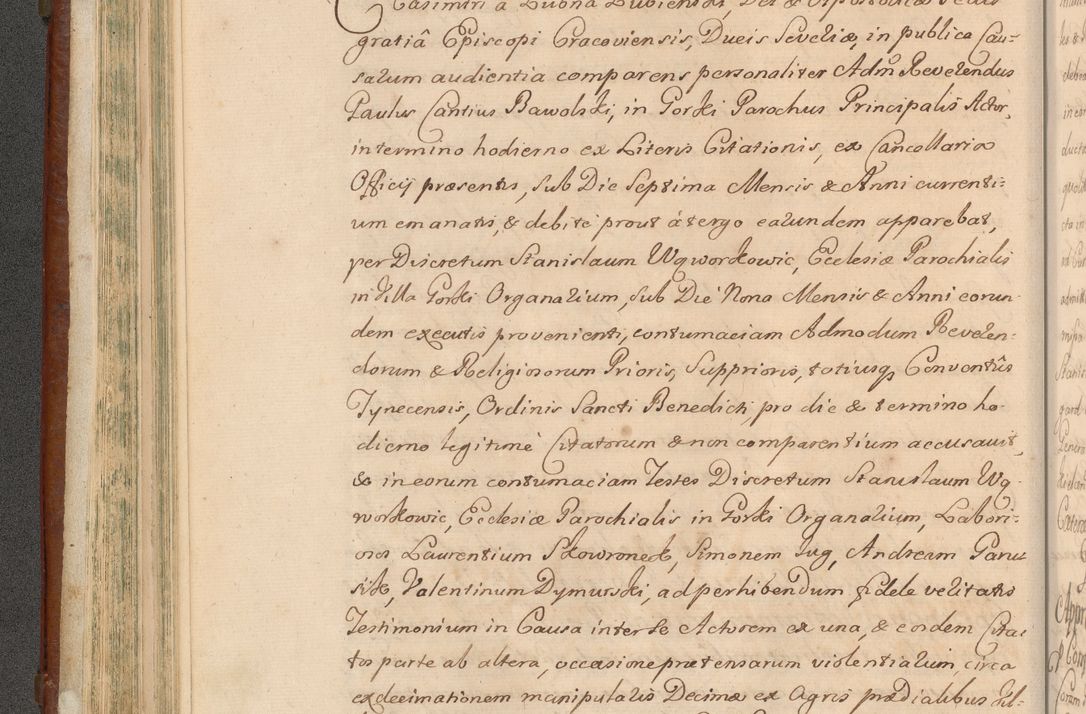 Casimiri à Lubna Lubienski, Dei & Apostolicæ Sedis
gratiâ Episcopi Cracoviensis, Ducis Severiæ, in publica Cau-
sarum audientia comparens personaliter Admo Reverendus
Paulus Cantius Bawolski, in Gorki Parochus Principalis Actor,
in termino hodierno ex Literis Citationis, ex Cancellaria
Officij præsentis, sub Die Septima Mensis & Anni currenti=
um emanatis, & debite prout à tergo earundem apparebat,
per Discretum Stanislaum Wąworkowic, Ecclesiæ Parochialis
in Villa Gorki Organarium, sub Die Nona Mensis & Anni eorun-
dem executis provenienti, contumaciam Admodum Reveren-
dorum & Religiosorum Prioris, Supprioris, totiusq, Conventûs
Tynecensis, Ordinis Sancti Benedicti, pro die & termino ho-
dierno legitimè Citatorum & non comparentium accusavit,
& in eorum contumaciam Testes Discretum Stanislaum Wą-
workowic, Ecclesiæ Parochialis in Gorki Organarium, Labori=
osos Laurentium Skowronek, Simonem Jug, Andream Paru-
sik, Valentinum Dymurski, ad perhibendum fidele veritatis
Testimonium in Causa inter se Actorem ex una, & eosdem Cita-
tos parte ab altera, occasione prætensarum violentiarum, circa
exdecimationem manipularis Decimæ ex Agris prædialibus Vil-